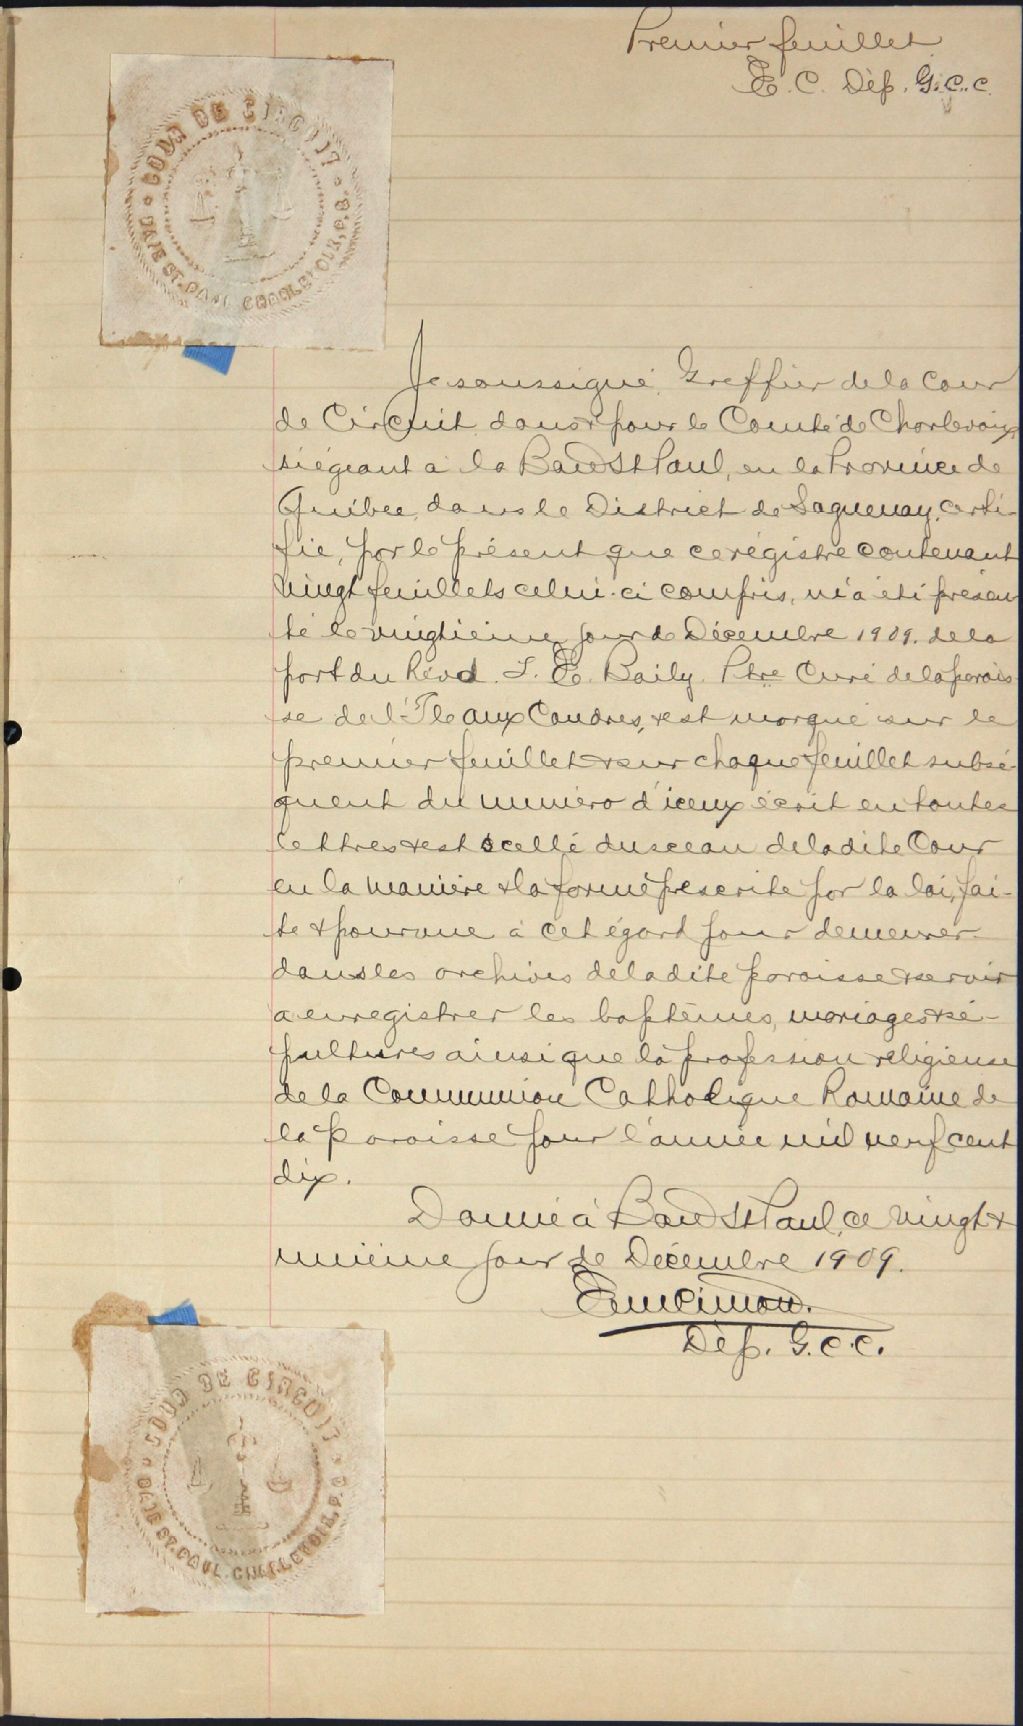 Premier feuillet
E. C. Dép. G. C. C.
COUR DE CIRCUIT
BAIE ST. PAUL CHARLEVOIX, P. Q.
Je soussigné, Greffier de la Cour
de Circuit dans & pour le Comté de Charlevoix,
siégeant à la Baie St Paul, en la Province de
Québec, dans le District de Saguenay, certi-
fie, par le présent que ce régistre contenant
vingt feuillets celui-ci compris, m'a été présen
té le vingtième jour de Décembre 1909. de la
part du Révd. J. E. Baily Ptre Curé de la parois
se de l'Ile aux Coudres, & est marqué sur le
premier feuillet & sur chaque feuillet subsé-
quent du numéro d'iceux écrit en toutes
lettres & est scellé du sceau de la dite Cour
en la manière & la forme prescrite par la loi, fai-
te & pourvue à cet égard pour demeurer
dans les archives de la dite paroisse & servir
a enregistrer les baptêmes, mariages & sé-
pultures ainsi que la profession religieuse
de la Communion Catholique Romaine de
la paroisse pour l'année mil neuf cent
dix.
Donné à Baie St Paul, ce vingt &
unième jour de Décembre 1909.
Em Cimon.
Dép. G. C. C.
COUR DE CIRCUIT
BAIE ST. PAUL CHARLEVOIX, P. Q.